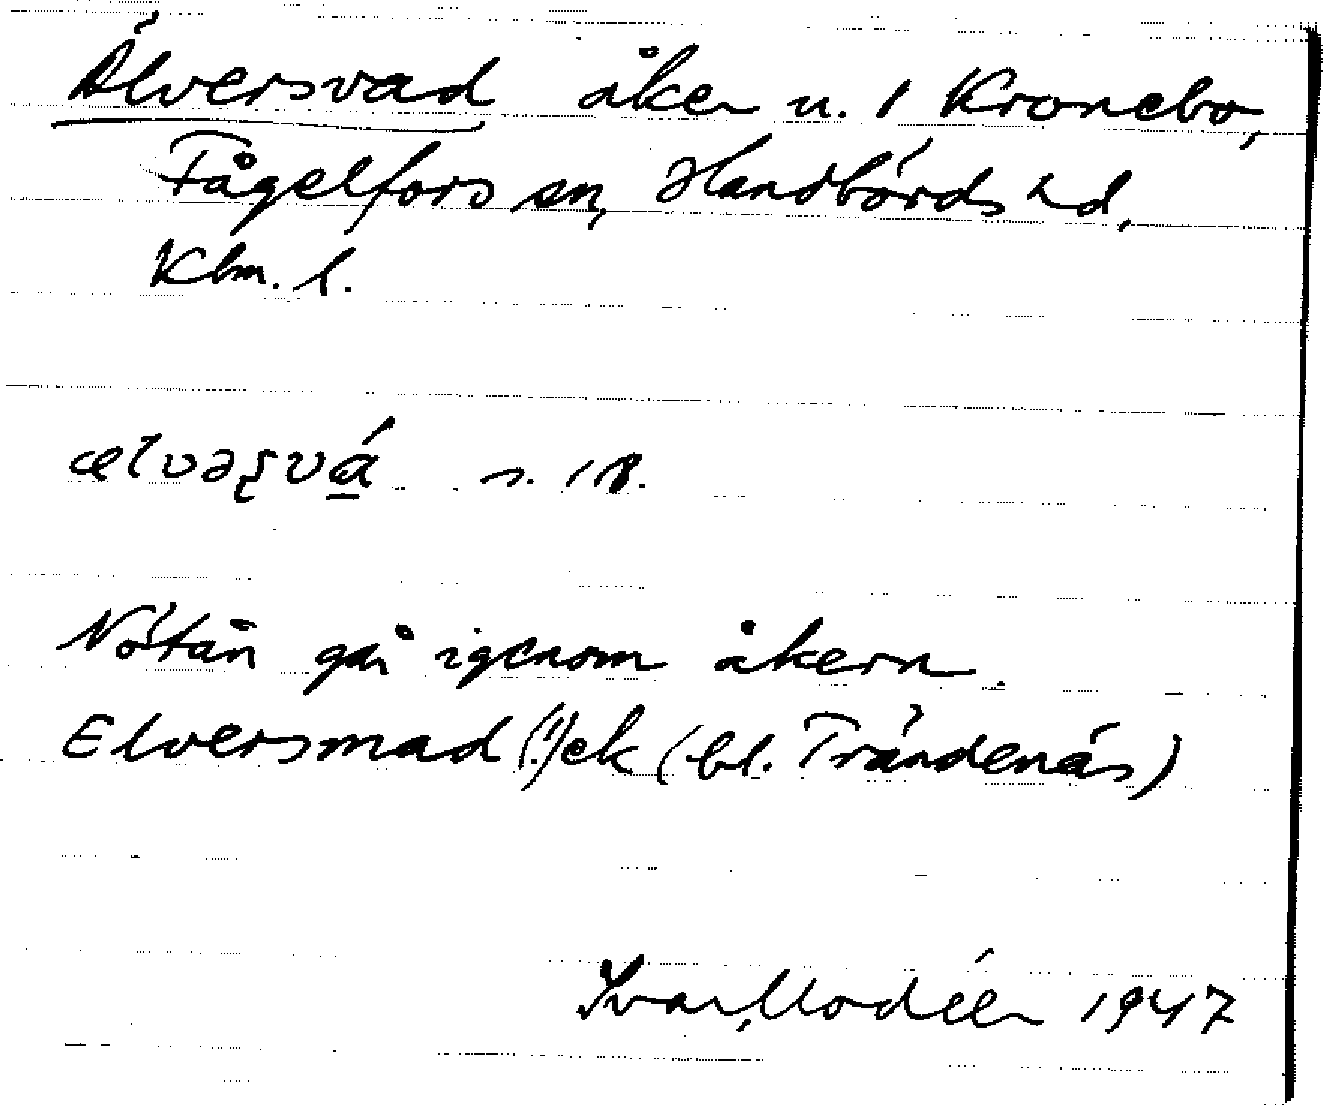 Älversvad åker u. 1 Kronebo,
Fågelfors sn, Handbörds hd,
Klm. l.
ælvəʂvá s. 18.
Nötån går igenom åkern.
Elversmad (!) ek (bl. Trändenäs)
Ivar Modéer 1947